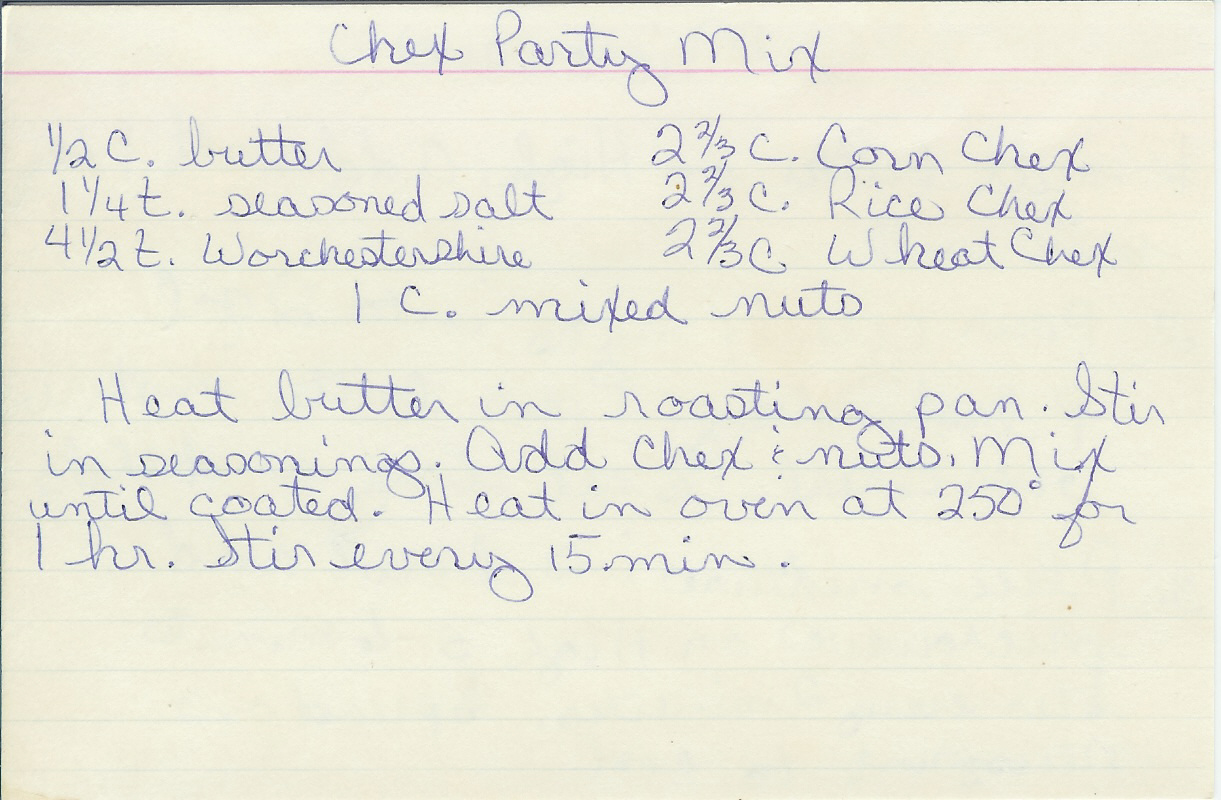 Chex Party Mix
1/2 C. butter 2 2/3 C. Corn Chex
1 1/4 t. seasoned salt 2 2/3 C. Rice Chex
4 1/2 t. Worchestershire 2 2/3 C. Wheat Chex
1 C. mixed nuts
Heat butter in roasting pan. Stir
in seasonings. Add Chex & nuts. Mix
until coated. Heat in oven at 250° for
1 hr. Stir every 15 min.